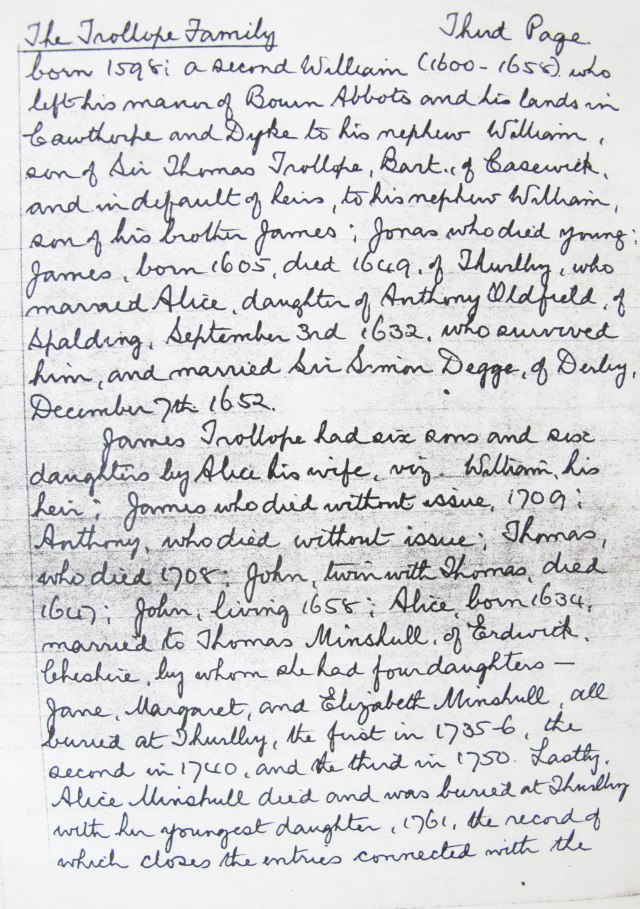 The Trollope Family Third Page.
born 1598; a second William (1600-1658) who
left his manor of Bourn Abbots and his lands in
Cawthorpe and Dyke to his nephew William,
son of Sir Thomas Trollope, Bart., of Casewick,
and in default of heirs, to his nephew William,
son of his brother James; Jonas who died young;
James, born 1605, died 1649, of Thurlby, who
married Alice, daughter of Anthony Oldfield, of
Spalding, September 3rd 1632, who survived
him, and married Sir Simon Degge, of Derby,
December 7th 1652.
James Trollope had six sons and six
daughters by Alice his wife, viz. William, his
heir; James who died without issue, 1709;
Anthony, who died without issue; Thomas,
who died 1708; John, twin with Thomas, died
1647; John, living 1658; Alice, born 1634,
married to Thomas Minshull, of Erdwick,
Cheshire, by whom she had four daughters —
Jane, Margaret, and Elizabeth Minshull, all
buried at Thurlby, the first in 1735-6, the
second in 1740, and the third in 1750. Lastly,
Alice Minshull died and was buried at Thurlby
with her youngest daughter, 1761, the record of
which closes the entries connected with the